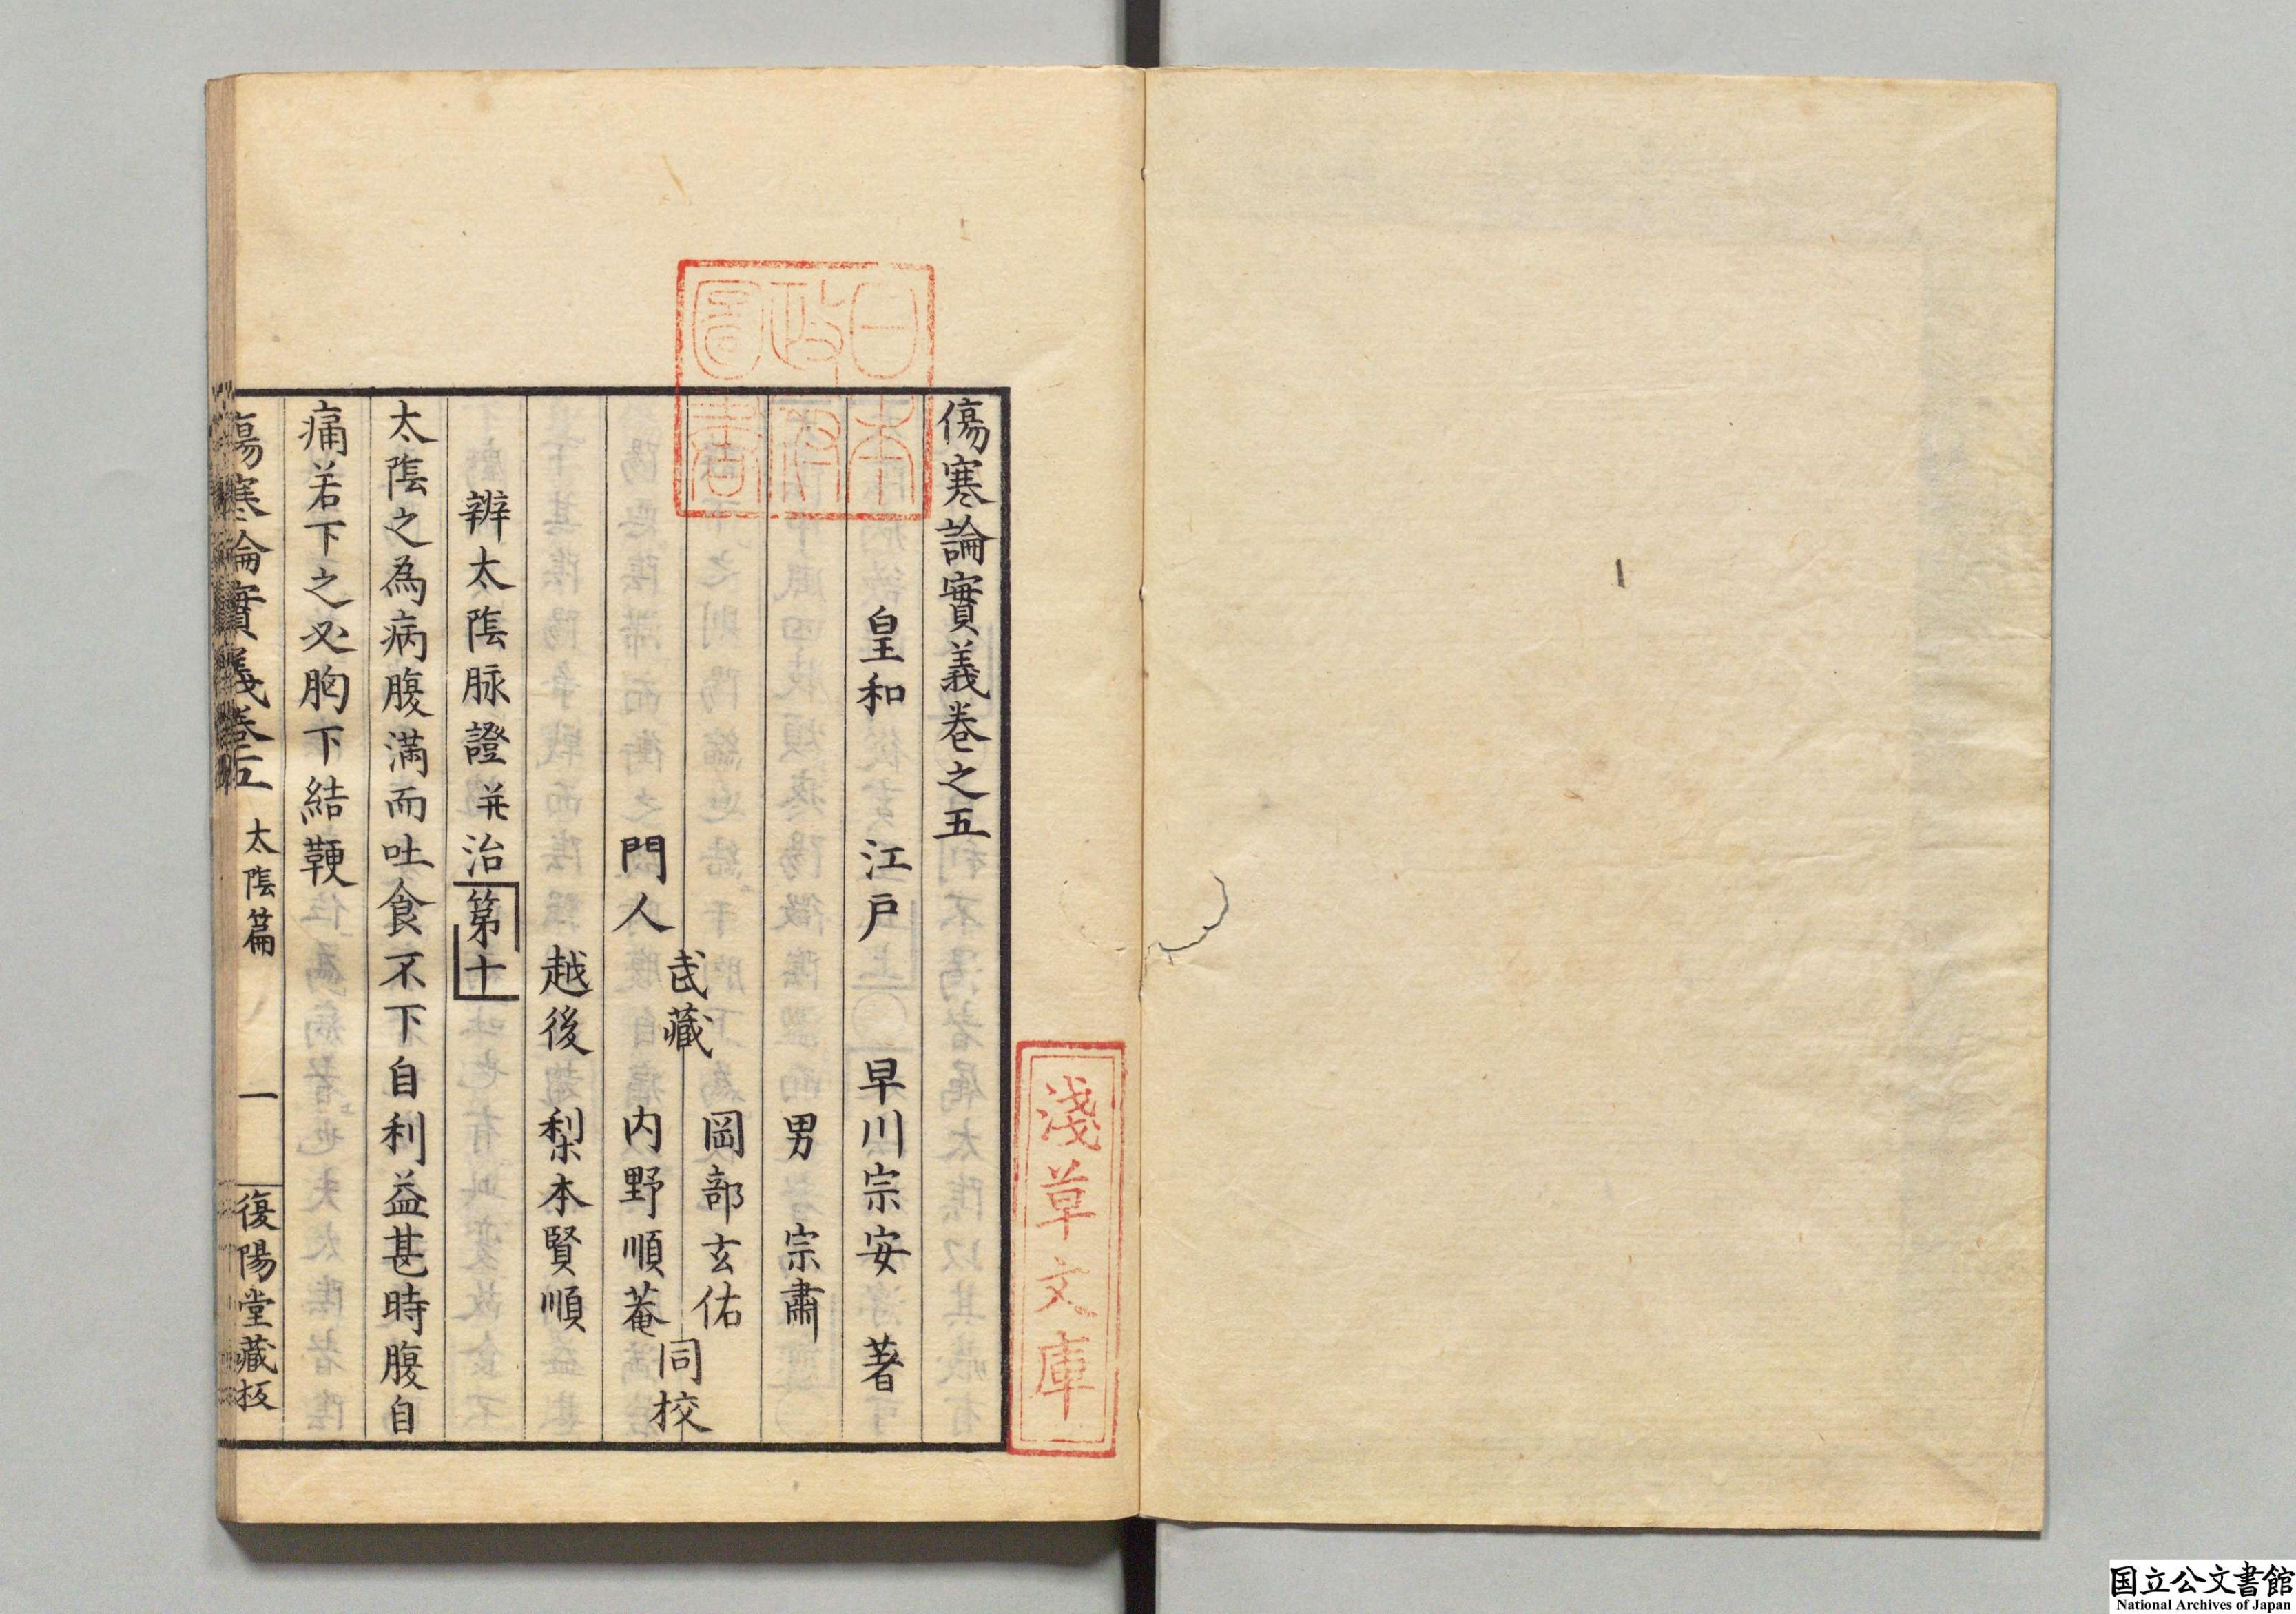 傷寒論實義卷之五
皇和 江戸 早川宗安 著
男 宗肅
武藏 岡部玄佑
門人 内野順菴 同校
越後 梨本賢順
辨太陰脉證并治第十
太陰之為病腹滿而吐食不下自利益甚時腹自
痛若下之必胸下結鞕
傷寒論實義卷五 太陰篇 一 復陽堂藏板
日本
政府
圖書
淺草文庫
国立公文書館
National Archives of Japan